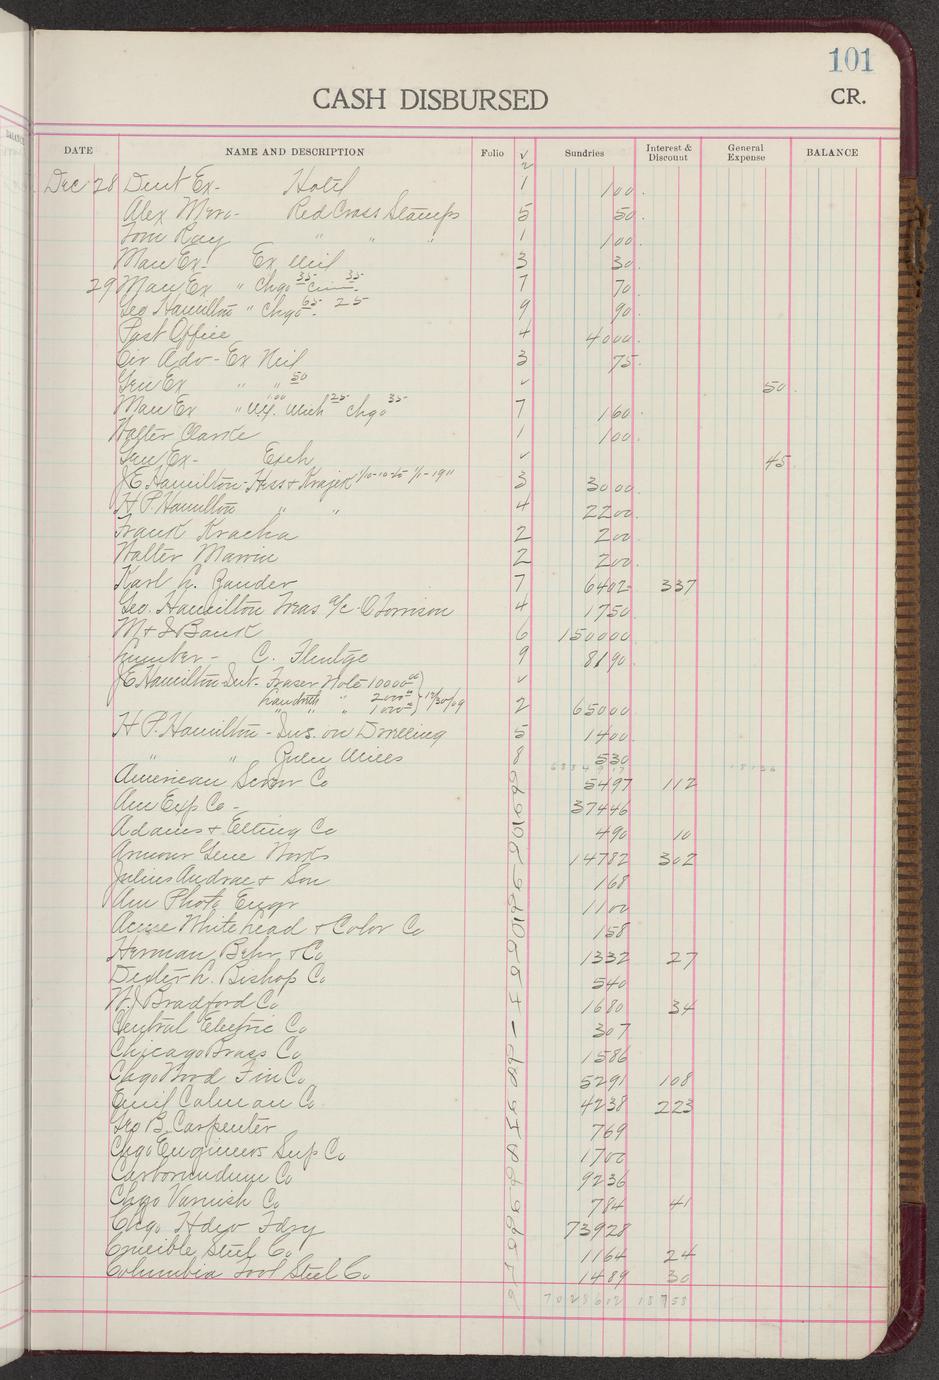 101
CASH DISBURSED
CR.
DATE NAME AND DESCRIPTION Folio Sundries Interest & Discount General Expense BALANCE
Dec 28 Dent Ex- Hotel 1 100
Alex Moro- Red Cross Stamps 5 50
Tom Ray " " " 1 100
Man Ex- Ex Neil 3 30
29 Man Ex " Chgo 35 Cinn 35 7 70
Geo Hamilton " Chgo 65 25 9 90
Post Office 4 4000
Cir Adv- Ex Neil 3 75
Gen Ex " " 50 ✓ 50
Man Ex " N.Y. 1.00 Mich 25 Chgo 35 7 160
Walter Clarke 1 100
Gen Ex- Exch ✓ 45
J E Hamilton- Hess & Krajek 3 3000
H P. Hamilton " " 4 2200
Frank Kracha 2 200
Walter Marvin 2 200
Karl L. Zander 7 6402 337
Geo. Hamilton Treas a/c O Torrison 4 1750
M & I Bank 6 150000
Lumber- C. Flentge 9 8190
J E Hamilton Int- Fraser Note 10000 00 ✓
Landreth " 2000 12/30/09
" " " 1000 2 65000
H P. Hamilton- Ins. on Dwelling 5 1400
" " 8 530
American Screw Co 5497 112
Am Exp Co- 37446
Adams & Elting Co 490 10
Armour Glue Works 14782 302
Julius Andrae & Son 168
Am Photo Engr 1100
Acme White Lead & Color Co 158
Herman Behr & Co 1332 27
Dexter L. Bishop Co 540
W. J Bradford Co 1680 34
Central Electric Co 307
Chicago Brass Co 1586
Chgo Wood Fin Co 5291 108
Emil Calman Co 4238 223
Geo B. Carpenter 769
Chgo Engineers Sup Co 1700
Carborundum Co 9236
Chgo Varnish Co 784 41
Chgo Hdw Fdry 73928
Crucible Steel Co 1164 24
Columbia Tool Steel Co 1489 30